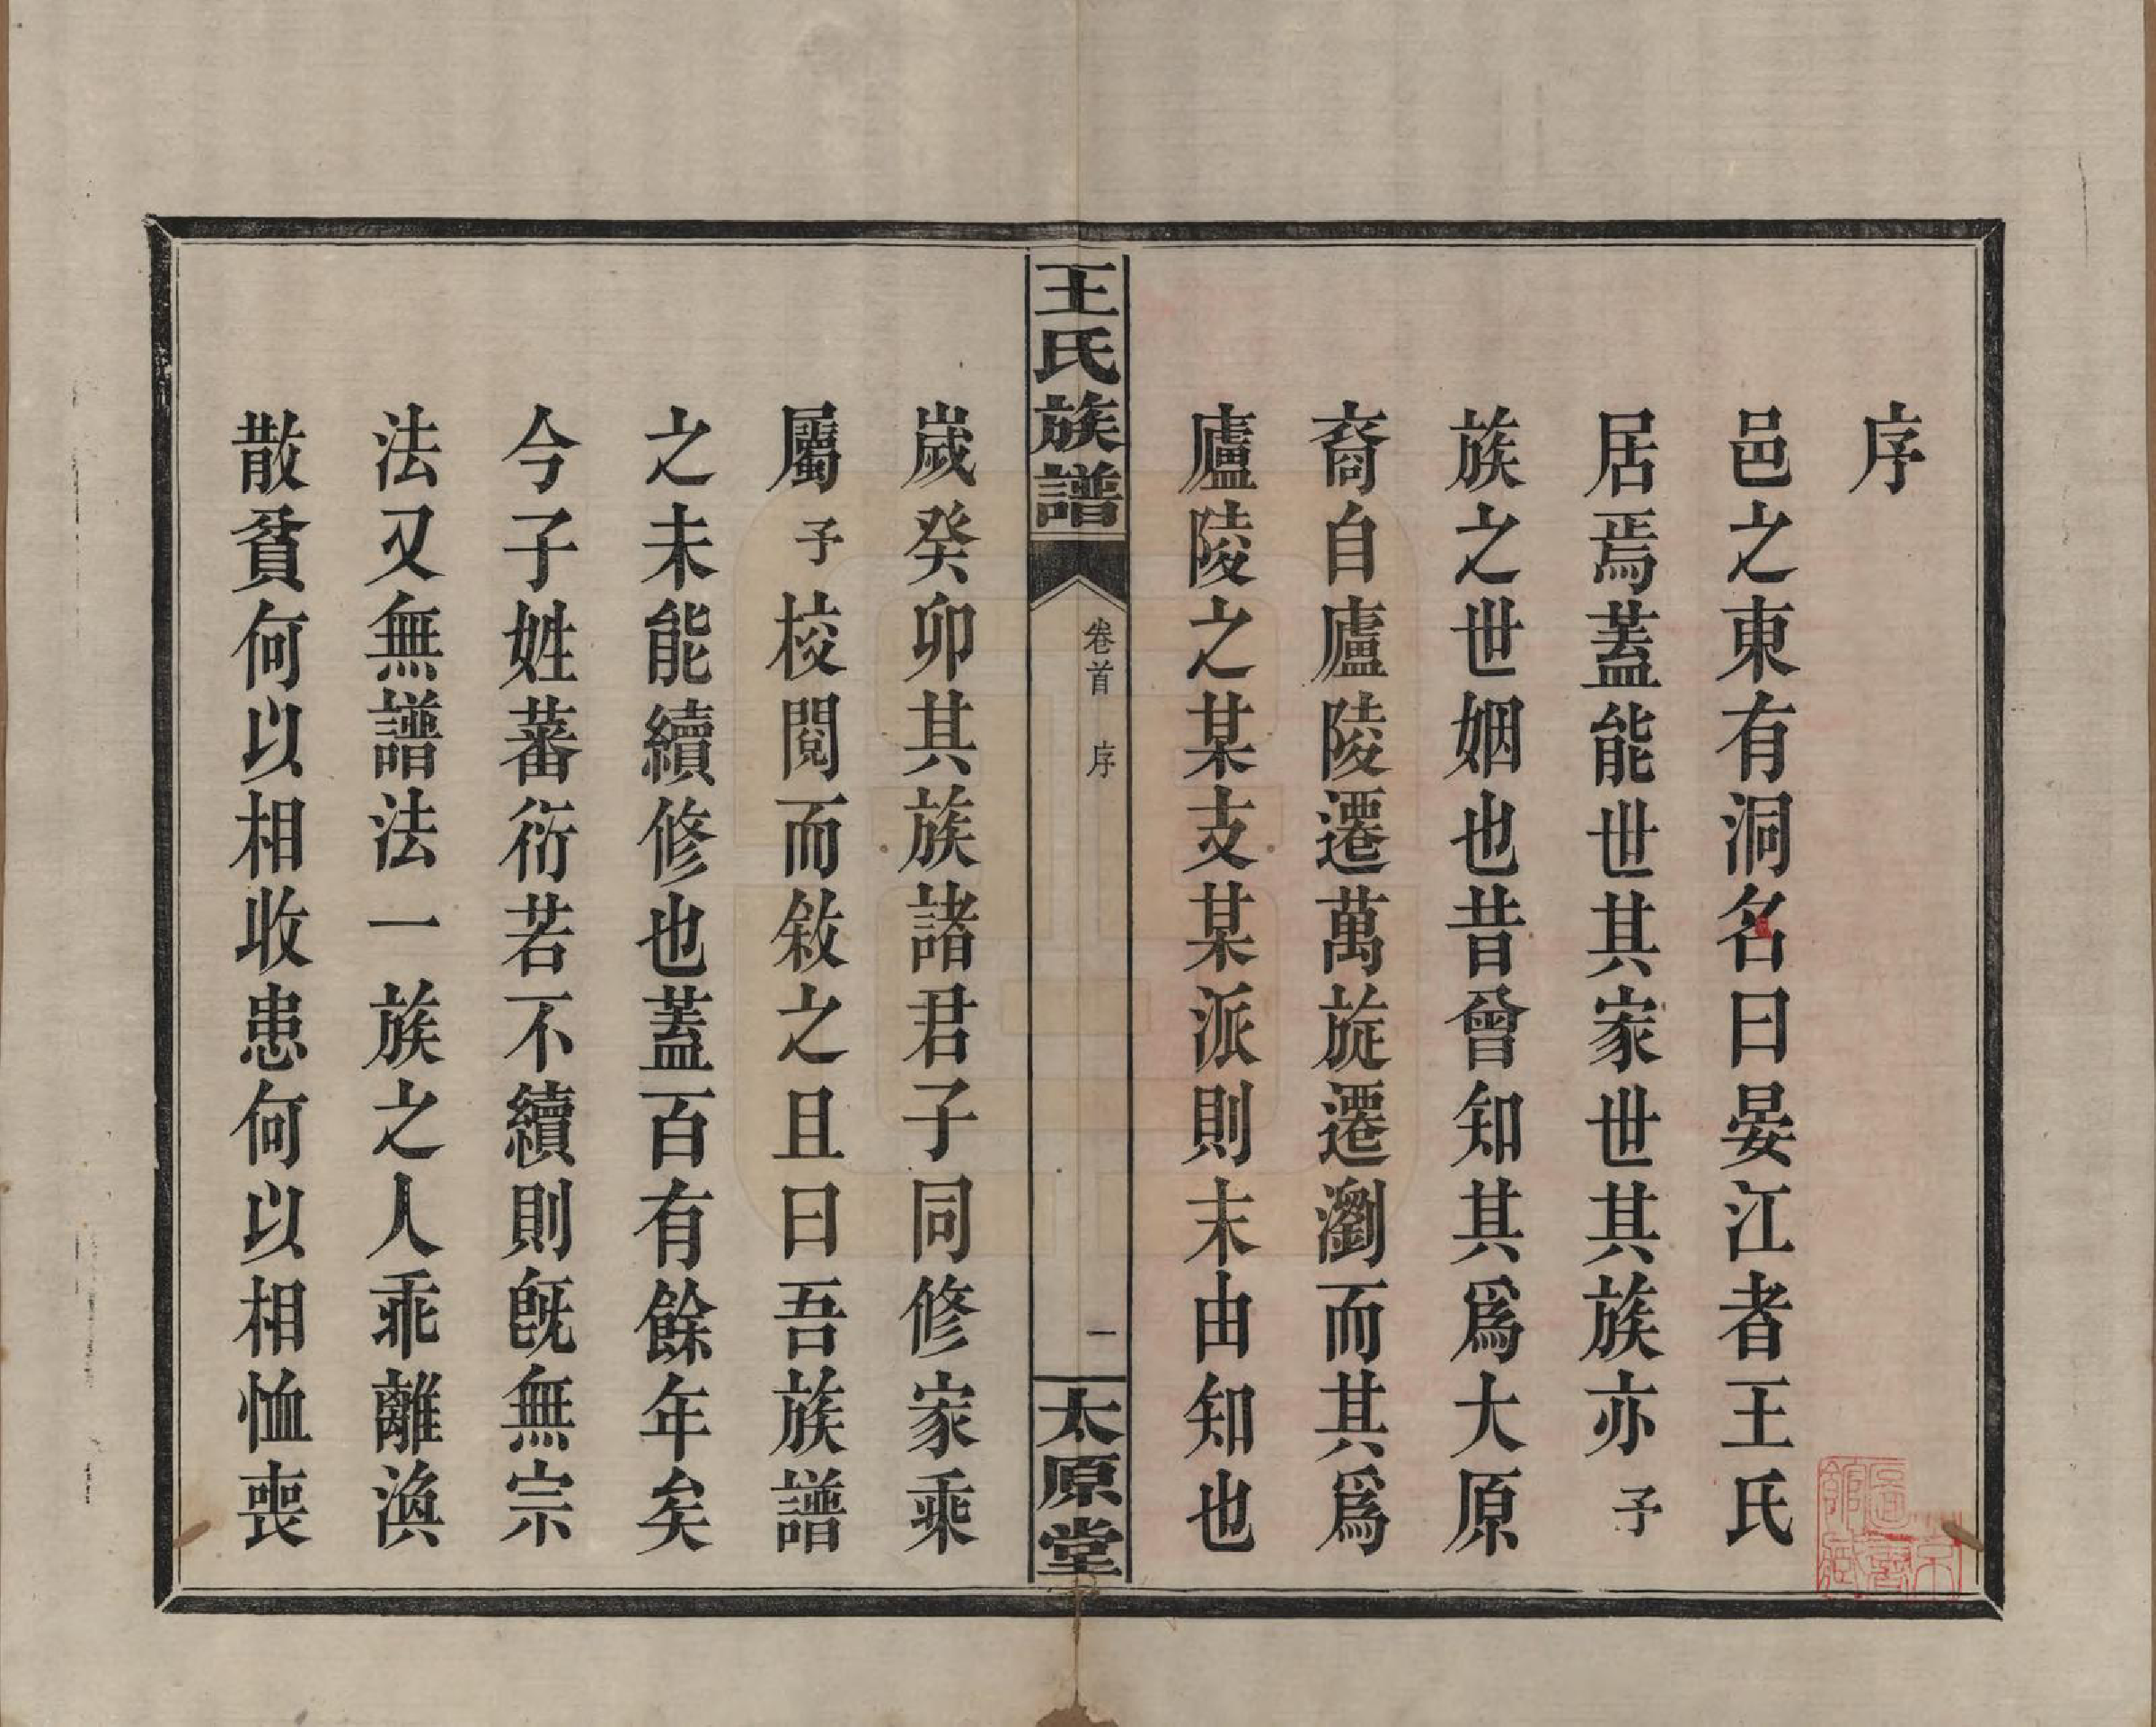 序
邑之東有洞名曰晏江者王氏
居焉蓋能世其家世其族亦予
族之世姻也昔曾知其爲大原
裔自廬陵遷萬旋遷瀏而其爲
廬陵之某支某派則末由知也
王氏族譜
卷首
序
一
太原堂
歲癸卯其族諸君子同修家乘
屬予校閱而敘之且曰吾族譜
之未能續修也蓋百有餘年矣
今子姓蕃衍若不續則旣無宗
法又無譜法一族之人乖離渙
散貧何以相收患何以相恤喪